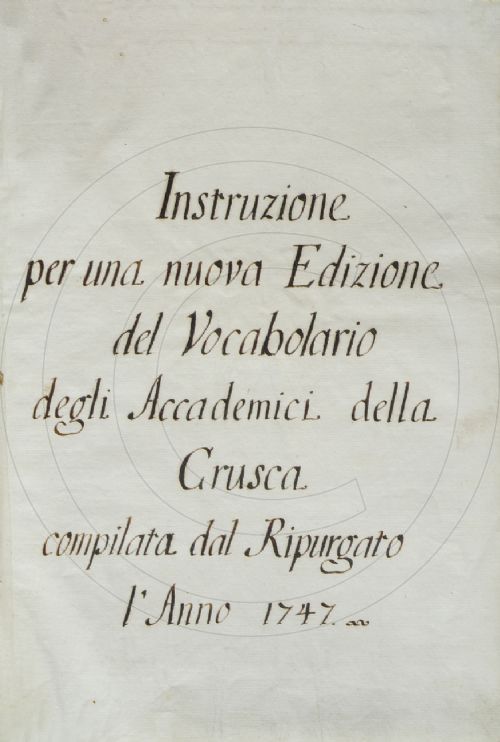 Instruzione
per una nuova Edizione
del Vocabolario
degli Accademici della
Crusca
compilata dal Ripurgato
l'Anno 1747.